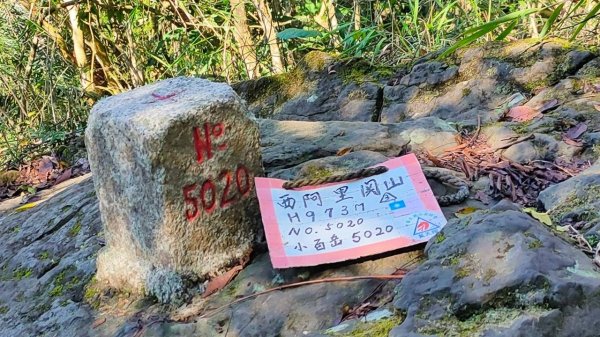 No
5020
西阿里関山
H973M
NO. 5020
小百岳5020